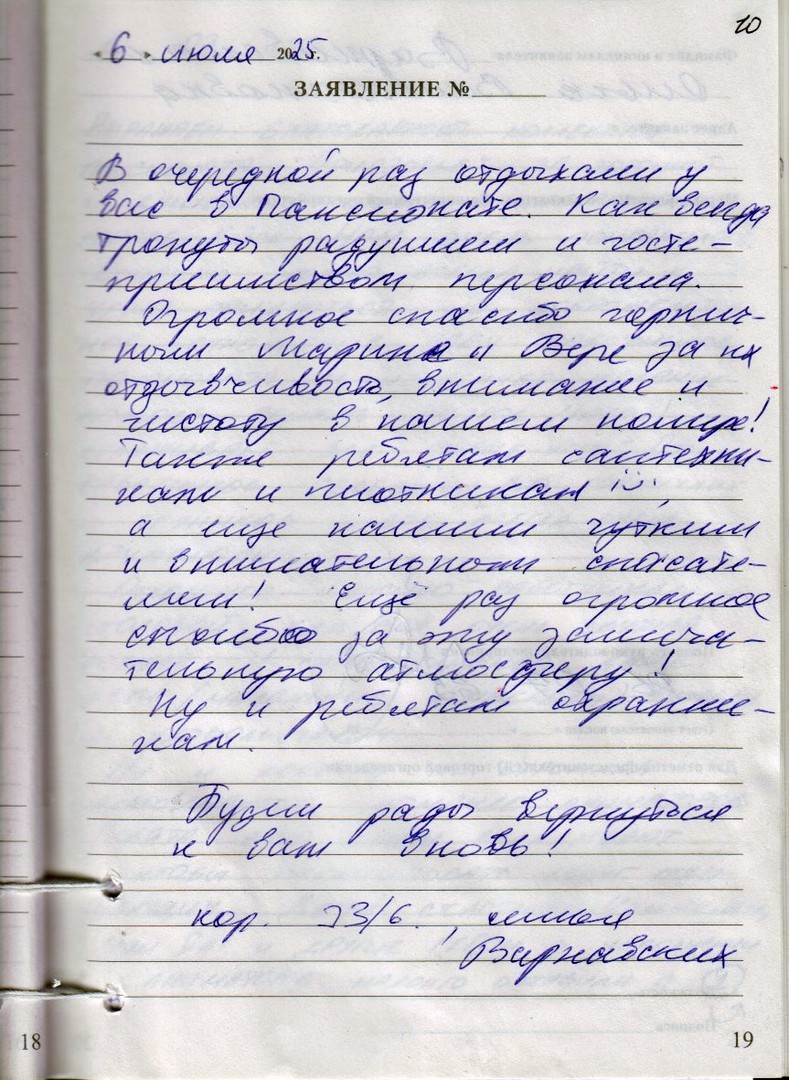 10
« 6 » июля 2025г.
ЗАЯВЛЕНИЕ №
В очередной раз отдыхали у
вас в Пансионате. Как всегда
тронуты радушием и госте-
приимством персонала.
Огромное спасибо горнич-
ным Марине и Вере за их
отзывчивость, внимание и
чистоту в нашем номере!
Также ребятам сантехни-
кам и плотникам :),
а еще нашим чутким
и внимательным спасате-
лям! Ещё раз огромное
спасибо за эту замеча-
тельную атмосферу!
Ну и ребятам охранни-
кам.
Будем рады вернуться
к вам вновь!
кор. 23/6., семья
Варнавских
18
19